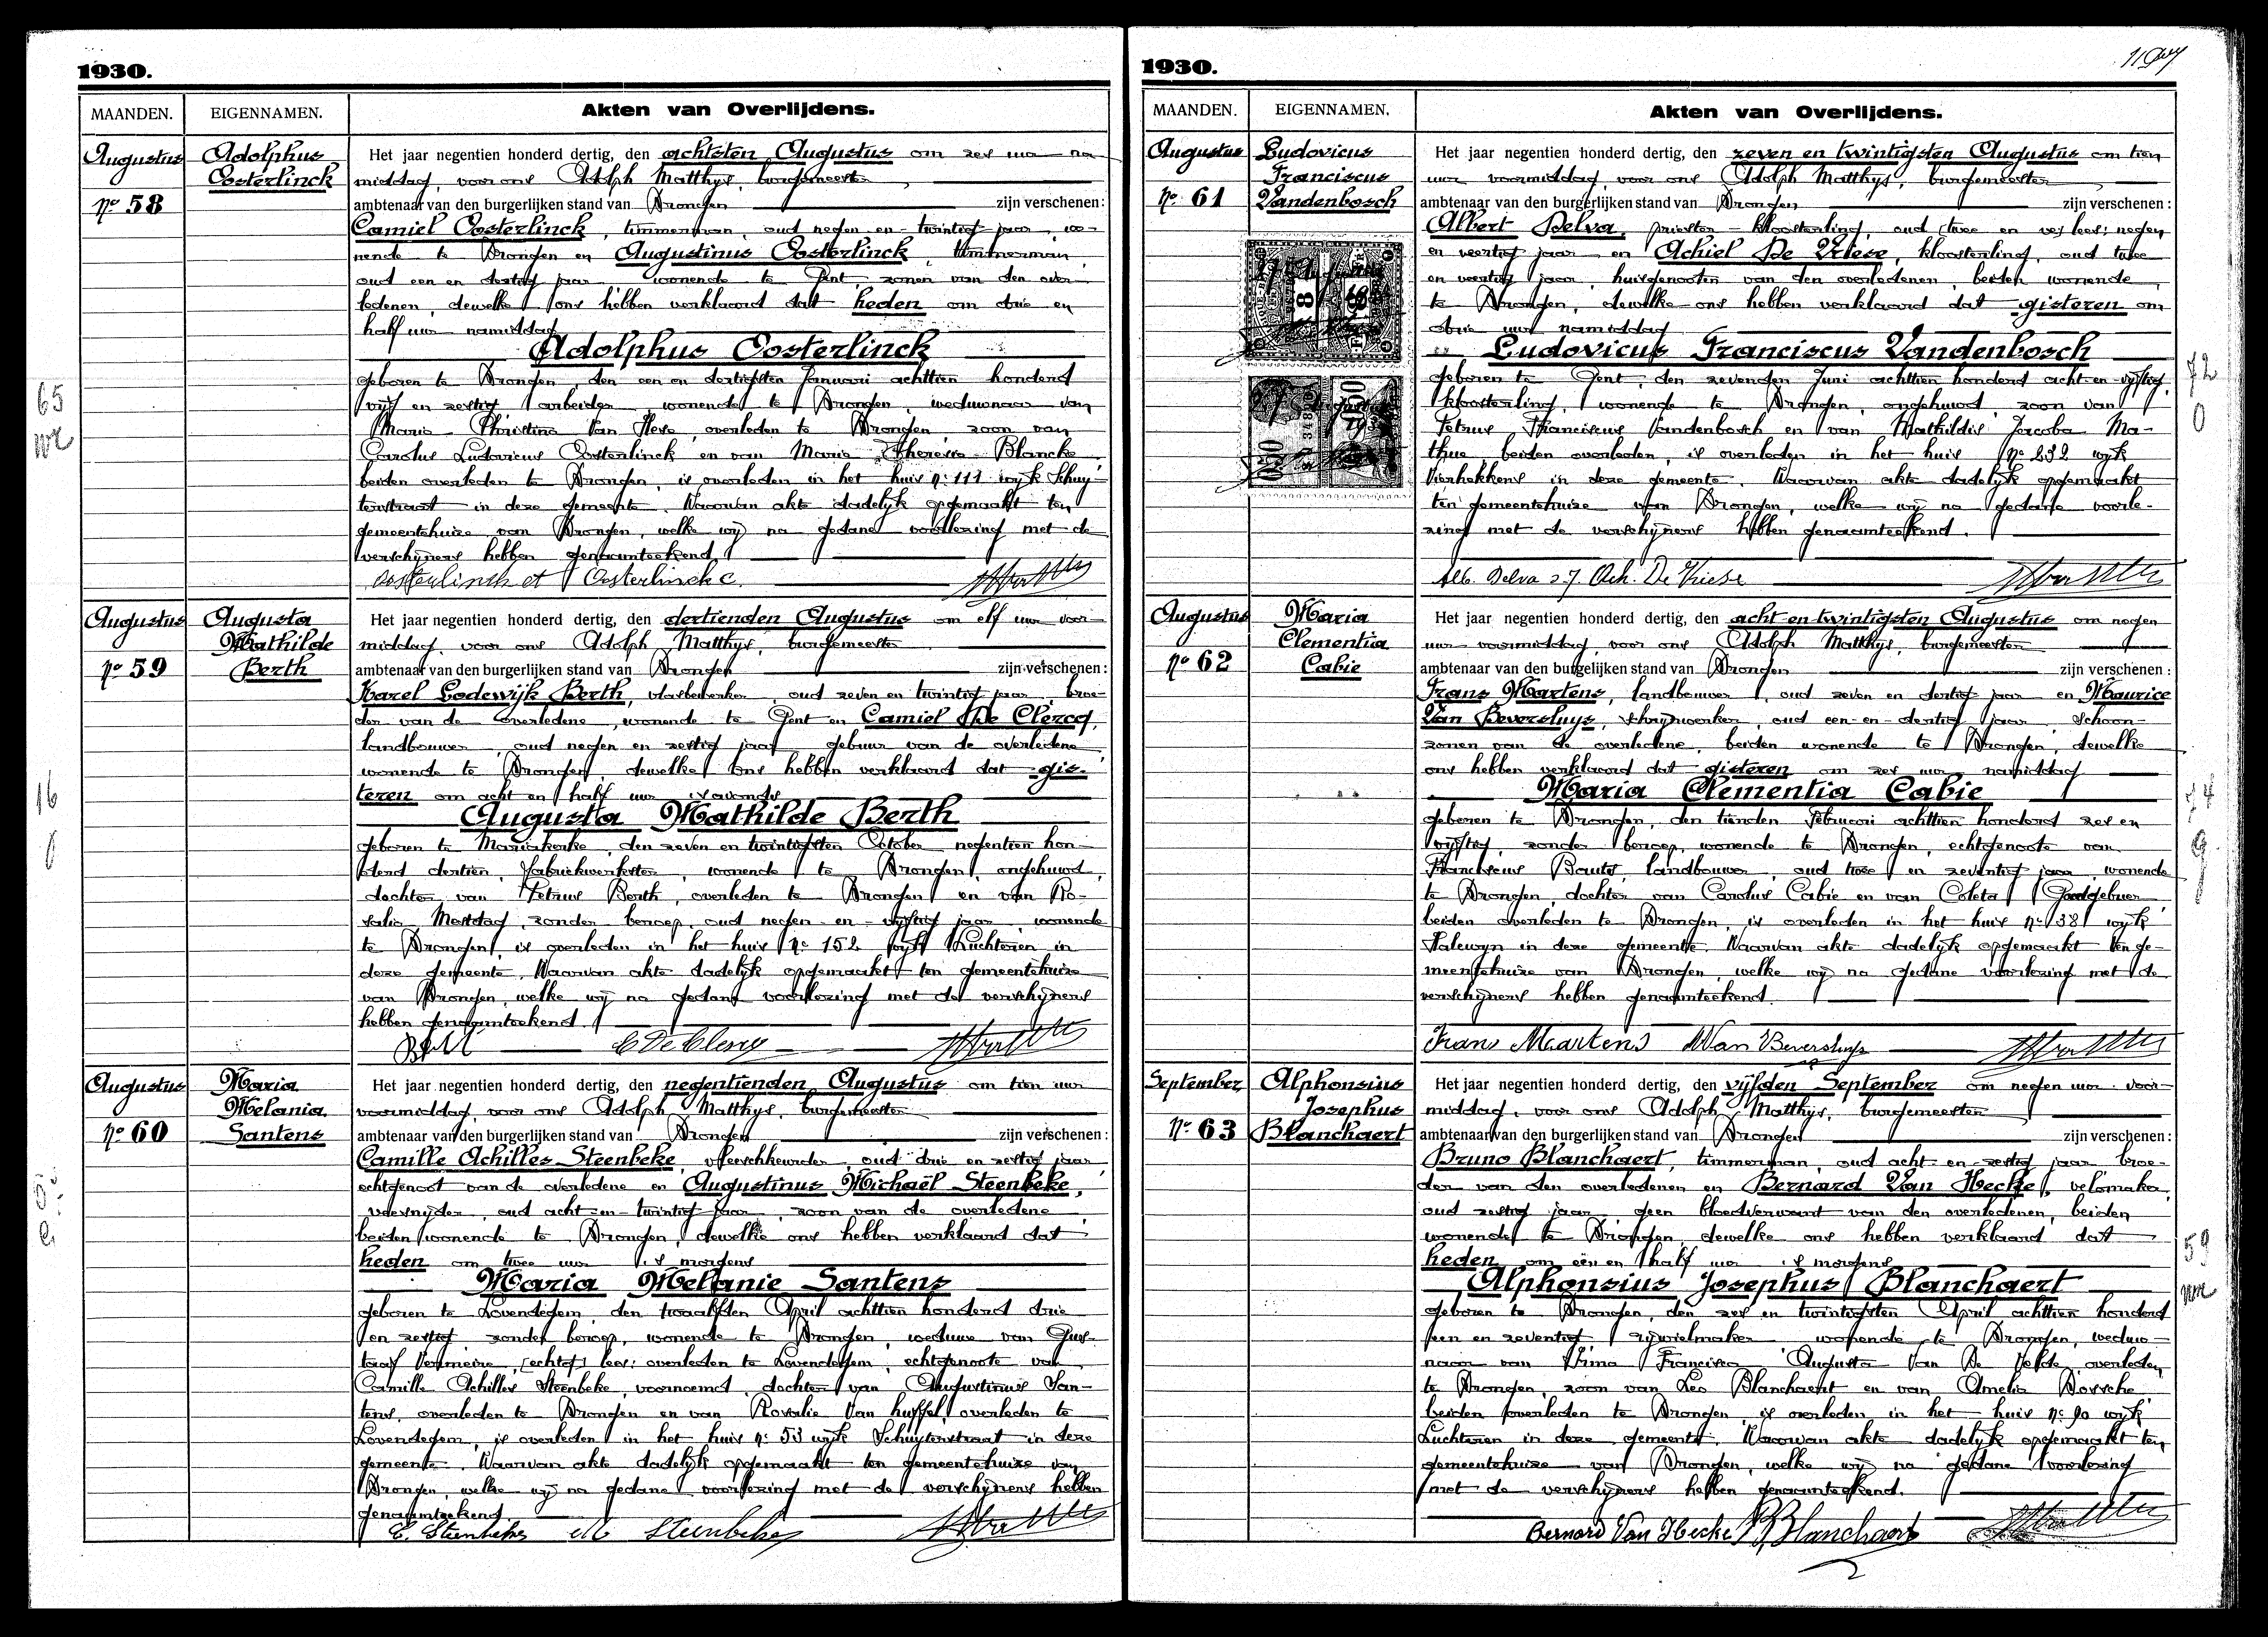 1930.
MAANDEN. EIGENNAMEN. Akten van Overlijdens.
Augustus
No 58
Adolphus
Oosterlinck
Het jaar negentien honderd dertig, den achtsten Augustus om zes uur na-
middag, voor ons Adolph Matthys, burgemeester
ambtenaar van den burgerlijken stand van Drongen zijn verschenen:
Camiel Oosterlinck, timmerman, oud negen en twintig jaar, wo-
nende te Drongen en Augustinus Oosterlinck, timmerman,
oud een en dertig jaar wonende te Gent zonen van den over-
ledenen, dewelke ons hebben verklaard dat heden om drie en
half uur namiddag
Adolphus Oosterlinck
geboren te Drongen, den een en dertigsten Januari achttien honderd
vijf en zestig arbeider, wonende te Drongen, weduwnaar van
Maria Christina Van Hese, overleden te Drongen, zoon van
Carolus Ludovicus Oosterlinck en van Maria Theresia Blancke
beiden overleden te Drongen, is overleden in het huis no 111 wijk Schuy-
tenstraat in deze gemeente. Waarvan akte dadelijk opgemaakt ten
gemeentehuize van Drongen, welke wij na gedane voorlezing met de
verschijners hebben genaamteekend.
Oosterlinck et Oosterlinck c.
Augustus
No 59
Augusta
Mathilde
Berth
Het jaar negentien honderd dertig, den dertienden Augustus om elf uur voor-
middag, voor ons Adolph Matthys, burgemeester
ambtenaar van den burgerlijken stand van Drongen zijn verschenen:
Karel Lodewijk Berth, vlasbewerker, oud zeven en twintig jaar, broe-
der van de overledene, wonende te Gent en Camiel De Clercq,
landbouwer, oud negen en zestig jaar gebuur van de overledene
wonende te Drongen, dewelke ons hebben verklaard dat gis-
teren om acht en half uur 's avonds
Augusta Mathilde Berth
geboren te Mariakerke, den zeven en twintigsten October negentien hon-
derd dertien, fabriekwerkster, wonende te Drongen, ongehuwd,
dochter van Petrus Berth, overleden te Drongen en van Ro-
salie Mestdag, zonder beroep, oud negen en vijftig jaar, wonende
te Drongen, is overleden in het huis No 152 wijk Luchteren in
deze gemeente. Waarvan akte dadelijk opgemaakt ten gemeentehuize
van Drongen, welke wij na gedane voorlezing met de verschijners
hebben genaamteekend.
C De Clercq
Augustus
No 60
Maria
Melania
Santens
Het jaar negentien honderd dertig, den negentienden Augustus om tien uur
voormiddag, voor ons Adolph Matthys, burgemeester
ambtenaar van den burgerlijken stand van Drongen zijn verschenen:
Camille Achilles Steenbeke, vleeschkeurder, oud drie en zestig jaar
echtgenoot van de overledene en Augustinus Michaël Steenbeke,
veesnijder, oud acht en twintig jaar, zoon van de overledene
beiden wonende te Drongen, dewelke ons hebben verklaard dat
heden om twee uur 's morgens
Maria Melanie Santens
geboren te Lovendegem, den twaalfden April achttien honderd drie
en zestig zonder beroep, wonende te Drongen, weduwe van Gus-
taaf Vermeire, (echtg) lees: overleden te Lovendegem, echtgenoote van
Camille Achilles Steenbeke, voornoemd, dochter van Augustinus San-
tens, overleden te Drongen en van Rosalie Van huffel overleden te
Lovendegem, is overleden in het huis no 53 wijk Schuytenstraat in deze
gemeente. Waarvan akte dadelijk opgemaakt ten gemeentehuize van
Drongen, welke wij na gedane voorlezing met de verschijners hebben
genaamteekend.
C. Steenbeke M Steenbeke
65
16
1930.
MAANDEN. EIGENNAMEN. Akten van Overlijdens.
Augustus
No 61
Ludovicus
Franciscus
Vandenbosch
Het jaar negentien honderd dertig, den zeven en twintigsten Augustus om tien
uur voormiddag, voor ons Adolph Matthys, burgemeester
ambtenaar van den burgerlijken stand van Drongen zijn verschenen:
Albert Delva, priester-kloosterling, oud twee en lees: negen
en veertig jaar en Achiel De Vriese, kloosterling, oud twee
en veertig jaar, huisgenooten van den overledenen, beiden wonende
te Drongen, dewelke ons hebben verklaard dat gisteren om
drie uur namiddag
Ludovicus Franciscus Vandenbosch
geboren te Gent, den zevenden Juni achttien honderd acht en vijftig,
kloosterling, wonende te Drongen, ongehuwd, zoon van
Petrus Franciscus Vandenbosch en van Mathildis Jacoba Ma-
thue, beiden overleden, is overleden in het huis No 232 wijk
Vierhekkens in deze gemeente. Waarvan akte dadelijk opgemaakt
ten gemeentehuize van Drongen, welke wij na gedane voorle-
zing met de verschijners hebben genaamteekend.
Alb. Delva Ach. De Vriese
Augustus
No 62
Maria
Clementia
Cabie
Het jaar negentien honderd dertig, den acht en twintigsten Augustus om negen
uur voormiddag, voor ons Adolph Matthys, burgemeester
ambtenaar van den burgelijken stand van Drongen zijn verschenen:
Frans Martens, landbouwer, oud zeven en dertig jaar en Maurice
Van Beversluys, schrijnwerker, oud een en dertig jaar schoon-
zonen van de overledene, beiden wonende te Drongen, dewelke
ons hebben verklaard dat gisteren om zes uur namiddag
Maria Clementia Cabie
geboren te Drongen, den tienden Februari achttien honderd zes en
vijftig, zonder beroep, wonende te Drongen, echtgenoote van
Franciscus Bauts, landbouwer, oud twee en zeventig jaar, wonende
te Drongen, dochter van Carolus Cabie en van Coleta Goedgebuer,
beiden overleden te Drongen, is overleden in het huis no 38 wijk
Halewyn in deze gemeente. Waarvan akte dadelijk opgemaakt ten ge-
meentehuize van Drongen, welke wij na gedane voorlezing met de
verschijners hebben genaamteekend.
Frans Maartens M Van Beversluys
September
No 63
Alphonsius
Josephus
Blanchaert
Het jaar negentien honderd dertig, den vijfden September om negen uur voor-
middag, voor ons Adolph Matthys, burgemeester
ambtenaar van den burgerlijken stand van Drongen zijn verschenen:
Bruno Blanchaert, timmerman, oud acht en zestig jaar broe-
der van den overledenen en Bernard Van Hecke, velomaker,
oud zestig jaar geen bloedverwant van den overledenen, beiden
wonende te Drongen, dewelke ons hebben verklaard dat
heden om één en half uur 's morgens
Alphonsius Josephus Blanchaert
geboren te Drongen, den zes en twintigsten April achttien honderd
een en zeventig rijwielmaker wonende te Drongen, weduw-
naar van Prima Francisca Augusta Van De Velde, overleden
te Drongen, zoon van Leo Blanchaert en van Amelia Dossche,
beiden overleden te Drongen, is overleden in het huis no 90 wijk
Luchteren in deze gemeente. Waarvan akte dadelijk opgemaakt ten
gemeentehuize van Drongen, welke wij na gedane voorlezing
met de verschijners hebben genaamteekend.
Bernard Van Hecke B Blanchaert
72
0
74
59